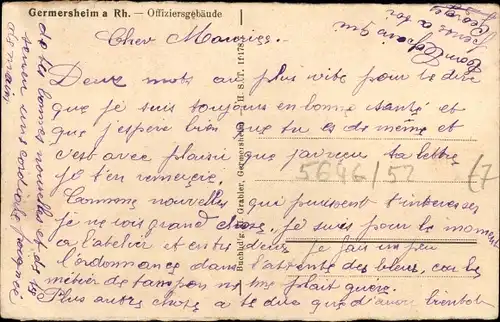 Germersheim a Rh. — Offiziersgebäude
Cher Maurice.
Deux mots au plus vite pour te dire
que je suis toujours en bonne santé et
que j'espère bien que tu es de même et
c'est avec plaisir que j'ai reçu ta lettre
je t'en remercie.
Comme nouvelles qui puissent t'intéresser
je ne vois grand chose, je suis pour le moment
à l'atelier et entre deux je fais un peu
l'ordonnance dans l'attente des bleus, car le
métier de tampon ne me plait guère.
Plus autre chose à te dire que d'avoir bientôt
de tes bonnes nouvelles et de te
serrer une cordiale poignée
de main.
Ton Copain qui
pense à toi
Georges
Buchhdlg. Grabler, Germersheim — H. S. T. 1178
5646/52
(7